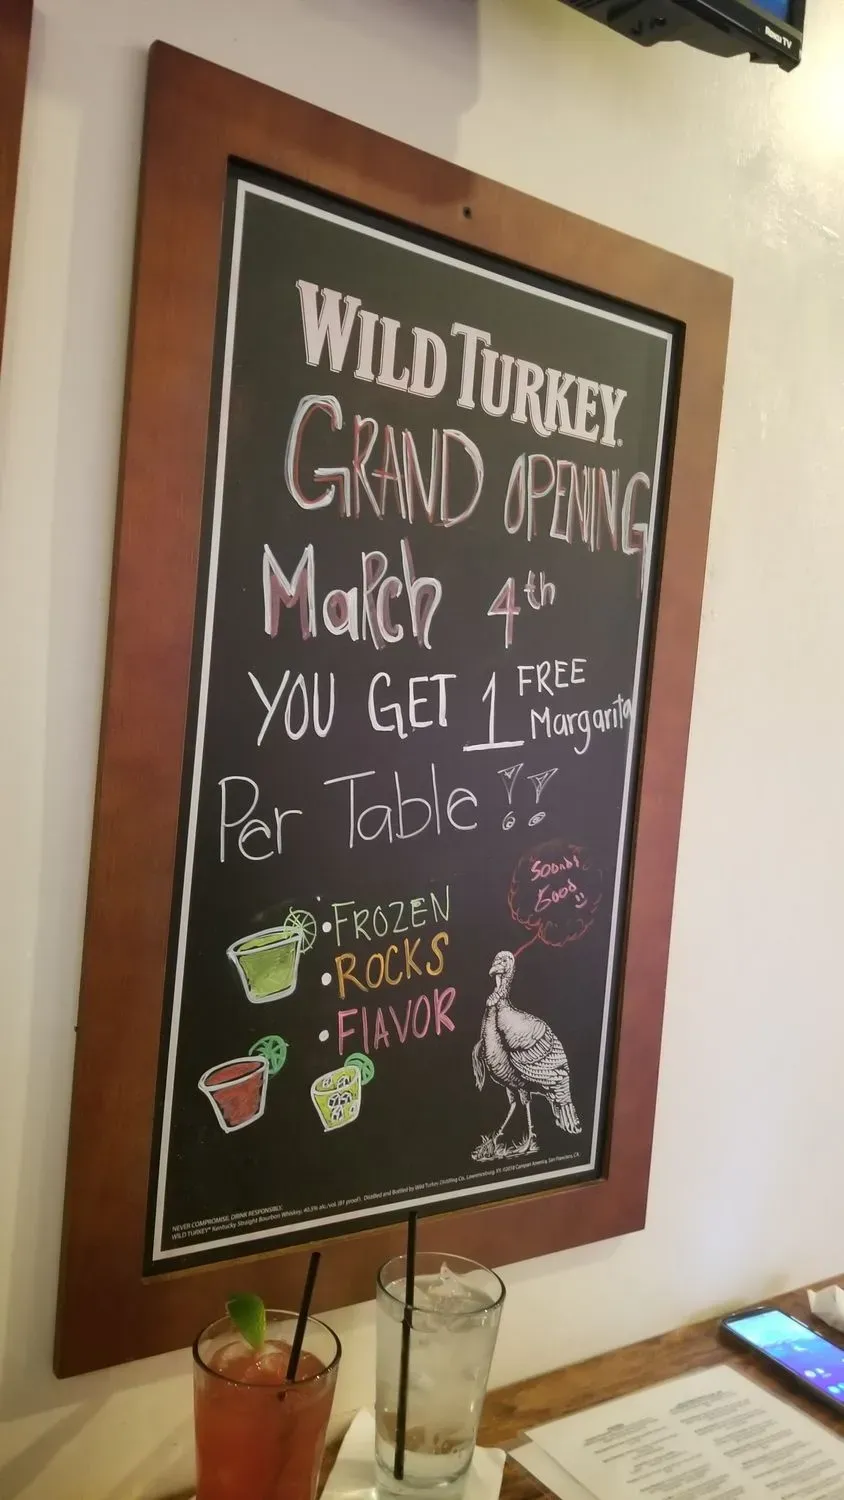 Roku TV
WILD TURKEY
GRAND OPENING
MaRch 4th
YOU GET 1 FREE Margarita
Per Table !!
Soonds
Good
• FROZEN
• ROCKS
• FlAVOR
NEVER COMPROMISE. DRINK RESPONSIBLY.
WILD TURKEY® Kentucky Straight Bourbon Whiskey, 40.5% alc./vol. (81 proof). Distilled and Bottled by Wild Turkey Distilling Co., Lawrenceburg, KY. ©2018 Campari America, San Francisco, CA.